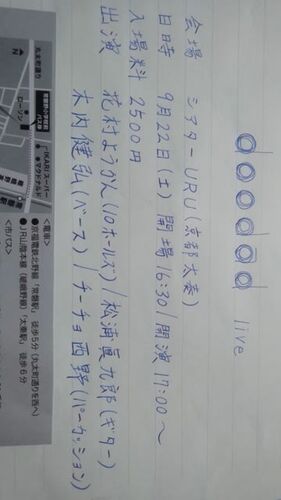 live
会場 シアターURU(京都太秦)
日時 9月22日(土) 開場16:30/開演17:00〜
入場料 2500円
出演 花村ようかん(10ホールズ)/松浦眞九郎(ギター)
木内健弘(ベース)/チーチョ西野(パーカッション)
丸太町通り
バス停
ローソン
IKARIスーパー
マクドナルド
N
<電車>
●京福電鉄北野線「常盤駅」 徒歩5分(丸太町通りを西へ)
●JR山陰本線(嵯峨野線)「太秦駅」 徒歩6分
<市バス>